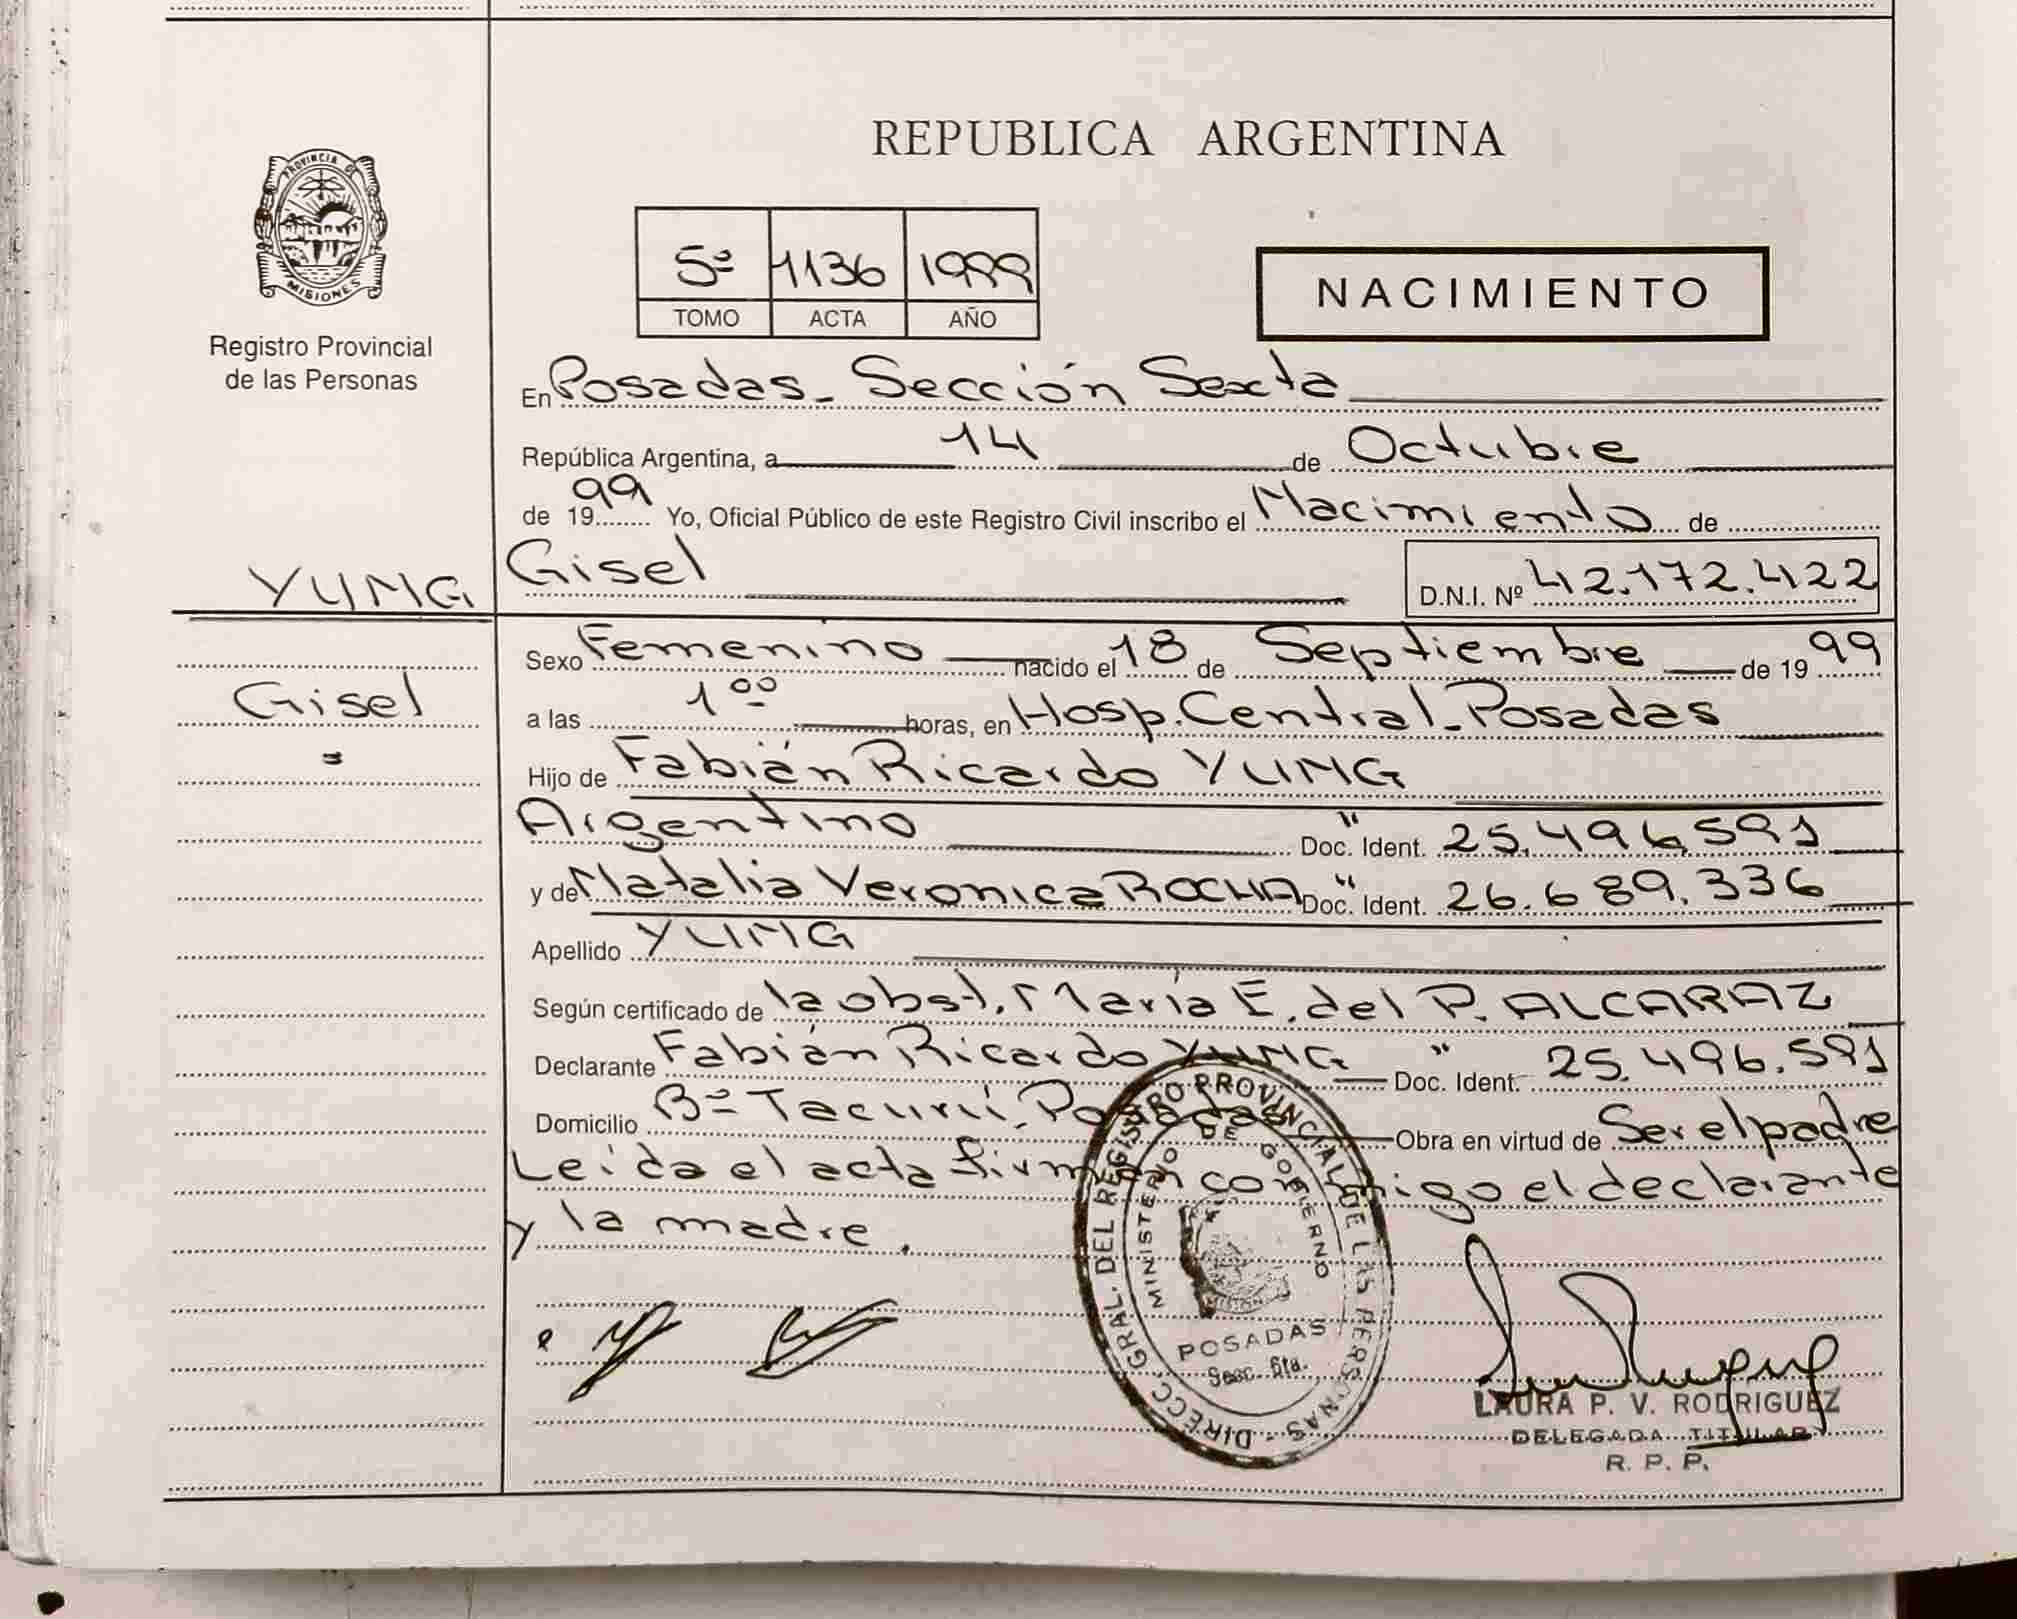 REPUBLICA ARGENTINA
PROVINCIA DE
MISIONES
Registro Provincial
de las Personas
5º 1136 1999
TOMO ACTA AÑO
NACIMIENTO
En Posadas_ Sección Sexta
República Argentina, a 14 de Octubre
de 1999 Yo, Oficial Público de este Registro Civil inscribo el Nacimiento de
YUNG Gisel D.N.I. Nº 42.172.422
Sexo Femenino nacido el 18 de Septiembre de 1999
Gisel
a las 1⁰⁰ horas, en Hosp. Central_Posadas
Hijo de Fabián Ricardo YUNG
Argentino Doc. " Ident. 25.496.591
y de Natalia Veronica ROCHA Doc. " Ident. 26.689.336
Apellido YUNG
Según certificado de la obst. María E. del P. ALCARAZ
Declarante Fabián Ricardo YUNG " Doc. Ident. 25.496.591
Domicilio Bº Tacurú_Posadas Obra en virtud de Ser el padre
Leída el acta firman conmigo el declarante
y la madre.
DIRECC. GRAL. DEL REGISTRO PROVINCIAL DE LAS PERSONAS
MINISTERIO DE GOBIERNO
POSADAS
Secc. 6ta.
LAURA P. V. RODRIGUEZ
DELEGADA TITULAR
R. P. P.